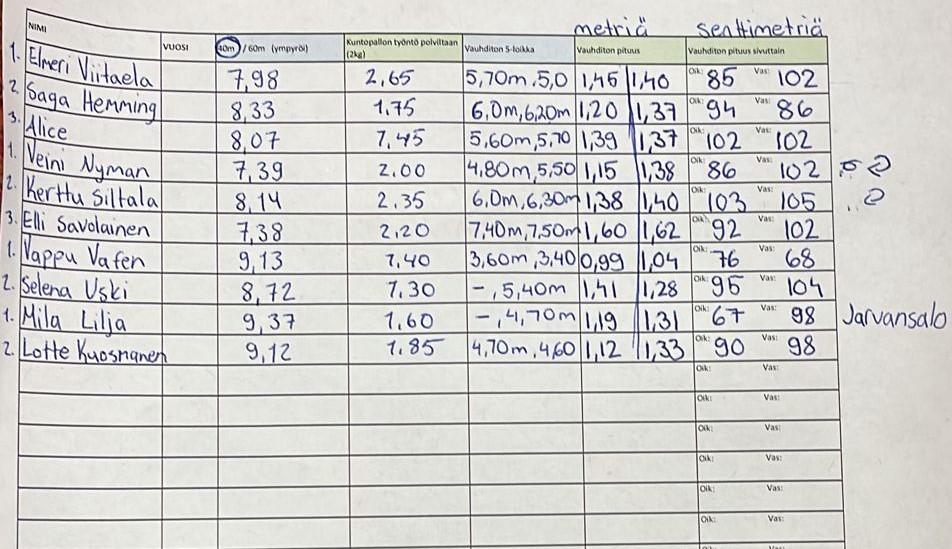 metriä senttimetriä
NIMI VUOSI 40m / 60m (ympyröi) Kuntopallon työntö polviltaan (2kg) Vauhditon 5-loikka Vauhditon pituus Vauhditon pituus sivuttain
1. Elmeri Viitaela 7,98 2,65 5,70m, 5,0 1,45 1,40 Oik: 85 Vas: 102
2. Saga Hemming 8,33 1.75 6,0m, 6,20m 1,20 1,37 Oik: 94 Vas: 86
3. Alice 8,07 1,45 5,60m, 5,70 1,39 1,37 Oik: 102 Vas: 102
1. Veini Nyman 7,39 2.00 4,80m, 5,50 1,15 1,38 Oik: 86 Vas: 102
2. Kerttu Siltala 8,14 2.35 6,0m, 6,30m 1,38 1,40 Oik: 103 Vas: 105
3. Elli Savolainen 7,38 2,20 7,40m, 7,50m 1,60 1,62 Oik: 92 Vas: 102
1. Vappu Vafen 9,13 1,40 3,60m, 3,40 0,99 1,04 Oik: 76 Vas: 68
2. Selena Uski 8,72 1.30 -, 5,40m 1,41 1,28 Oik: 95 Vas: 104
1. Mila Lilja 9,37 1.60 -, 4,70m 1,19 1,31 Oik: 67 Vas: 98 Jarvansalo
2. Lotte Kuosmanen 9,12 1.85 4,70m, 4,60 1,12 1,33 Oik: 90 Vas: 98
Oik: Vas:
Oik: Vas:
Oik: Vas:
Oik: Vas:
Oik: Vas:
Oik: Vas: